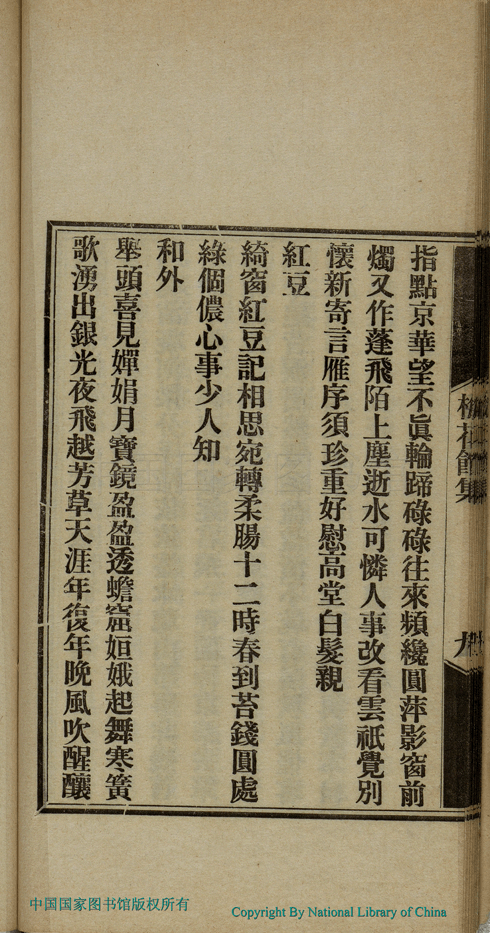 指點京華望不眞輪蹄碌碌往來頻纔圓萍影窗前
燭又作蓬飛陌上塵逝水可憐人事改看雲祇覺別
懷新寄言雁序須珍重好慰高堂白髮親
紅豆
綺窗紅豆記相思宛轉柔腸十二時春到苔錢圓處
綠個儂心事少人知
和外
舉頭喜見嬋娟月寶鏡盈盈透蟾窟姮娥起舞寒簧
歌湧出銀光夜飛越芳草天涯年復年晚風吹醒釀
梅花館集
九
中国国家图书馆版权所有
Copyright By National Library of China